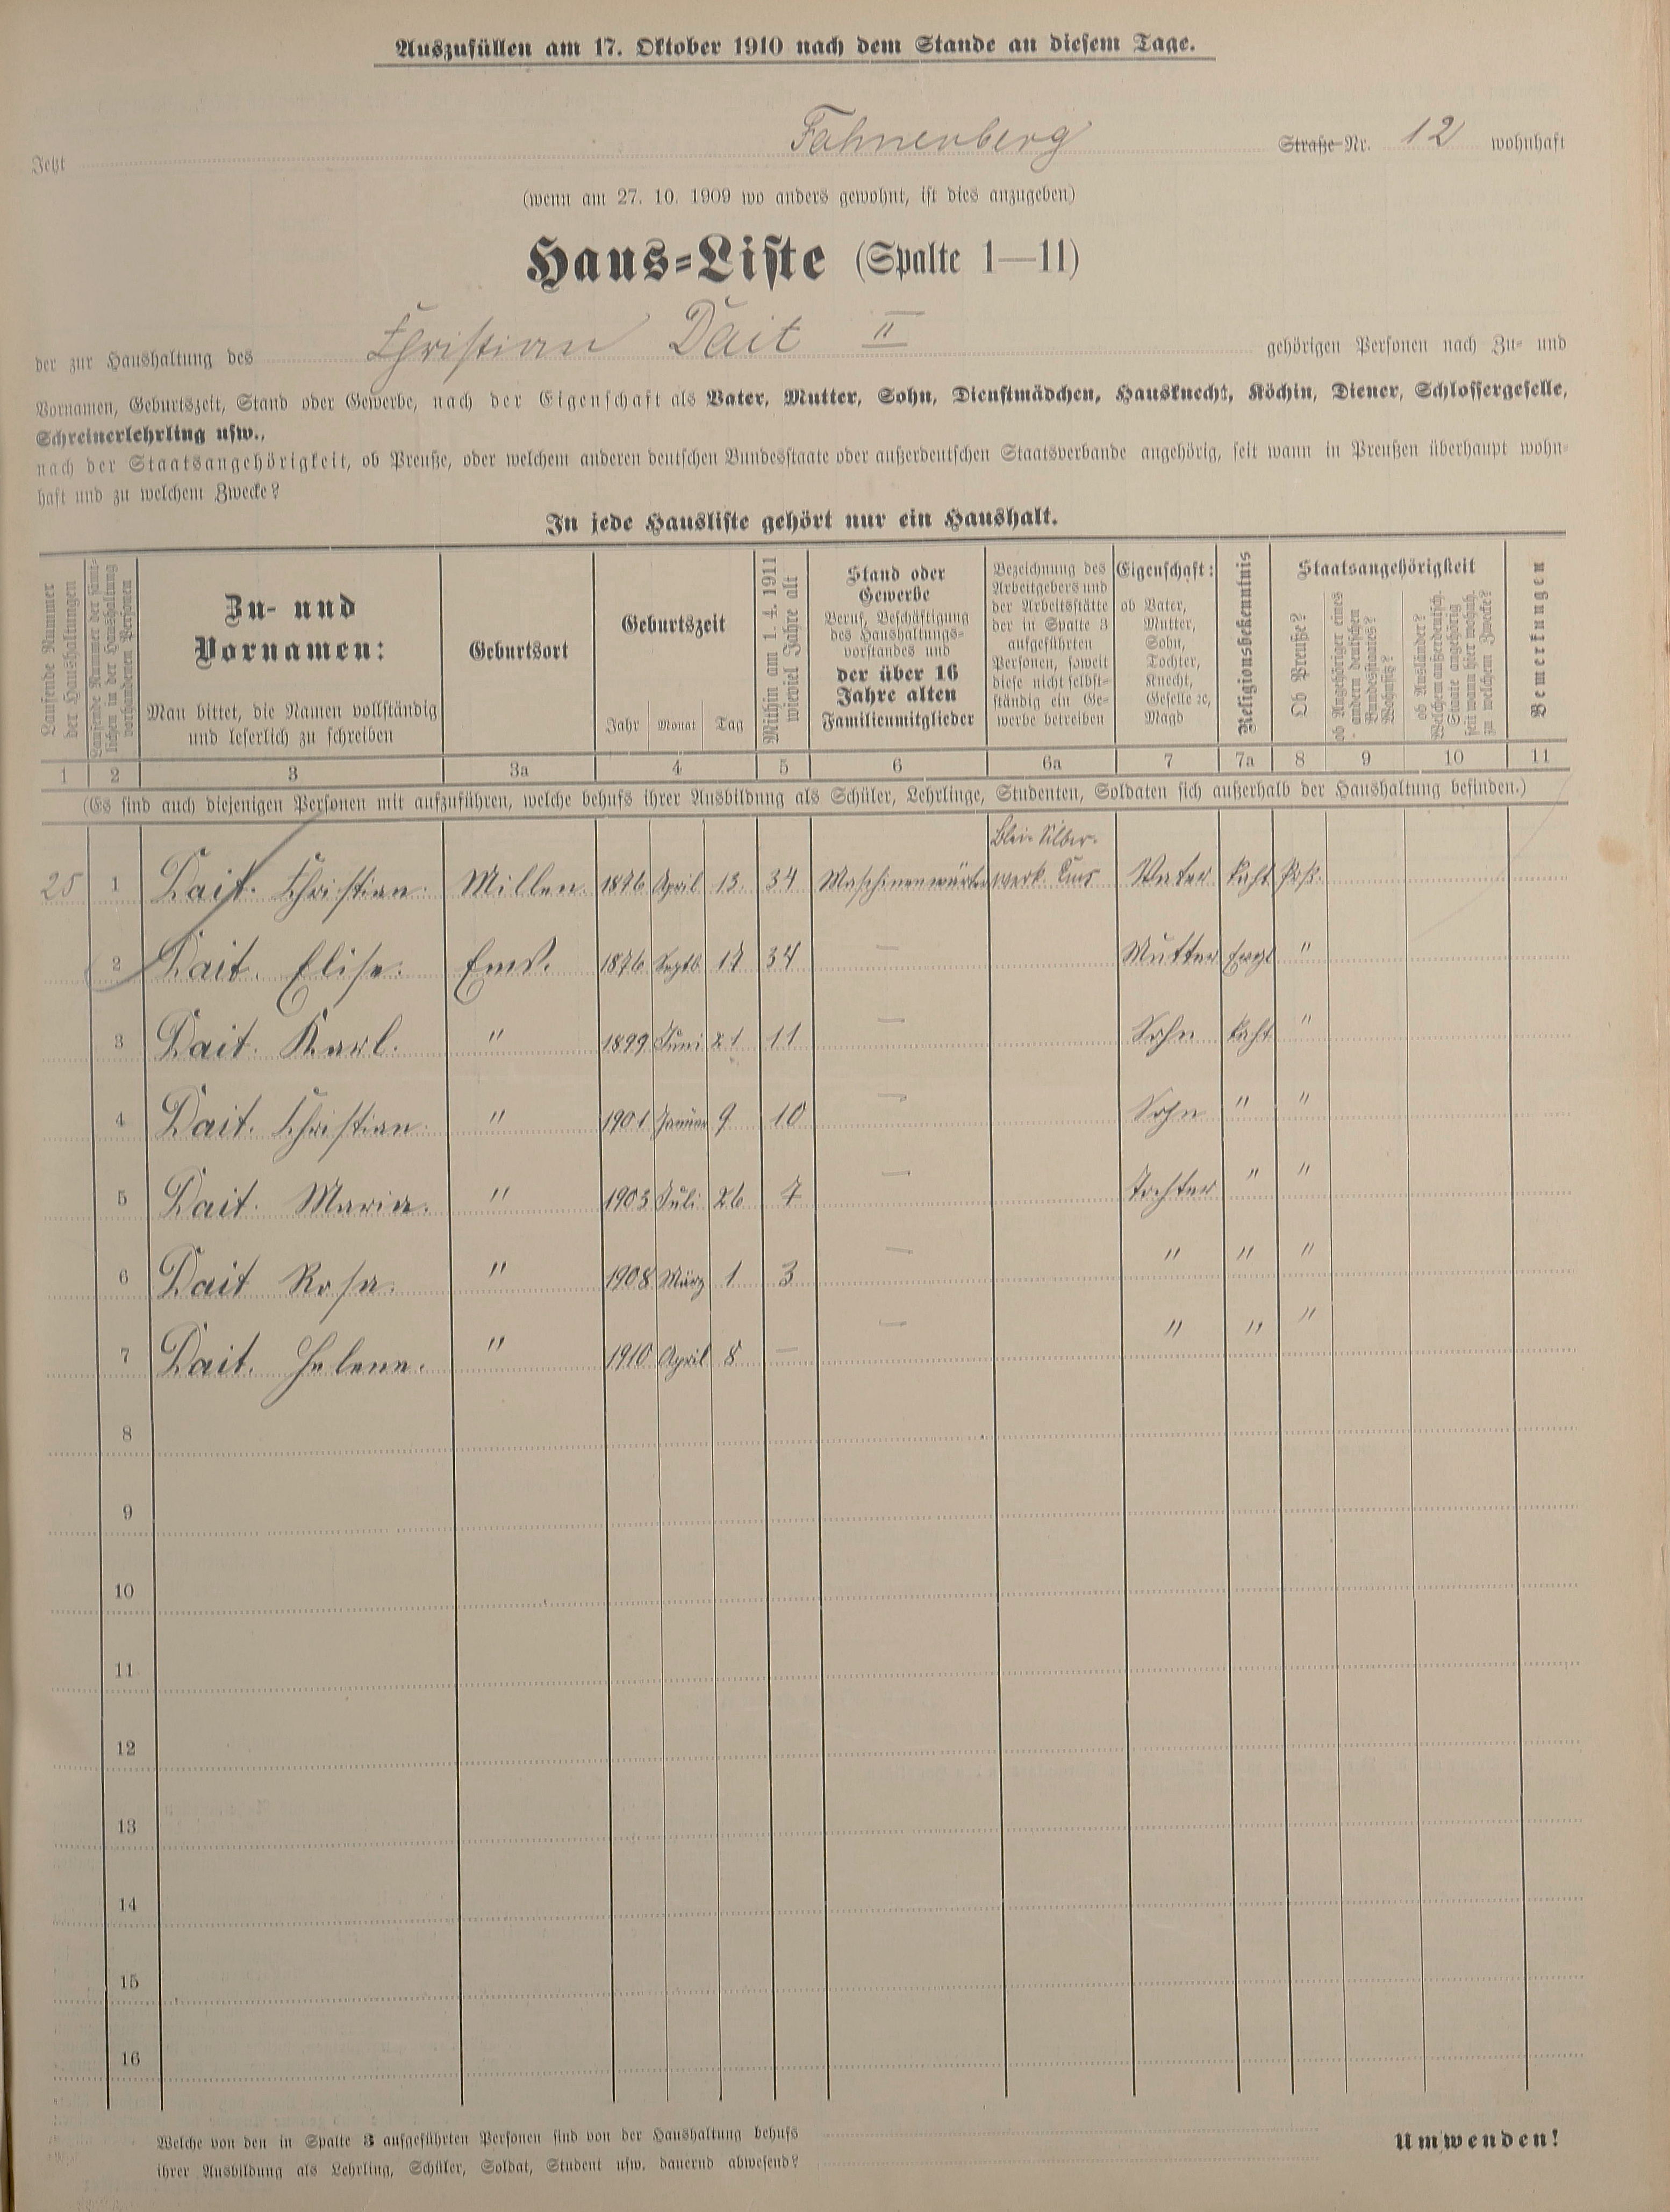 Auszufüllen am 17. Oktober 1910 nach dem Stande an diesem Tage.
Jetzt Fahnenberg Straße Nr. 12 wohnhaft
(wenn am 27. 10. 1909 wo anders gewohnt, ist dies anzugeben)
Haus-Liste (Spalte 1—11)
der zur Haushaltung des Christian Dait II gehörigen Personen nach Zu- und
Vornamen, Geburtszeit, Stand oder Gewerbe, nach der Eigenschaft als Vater, Mutter, Sohn, Dienstmädchen, Hausknecht, Köchin, Diener, Schlossergeselle,
Schreinerlehrling usw.,
nach der Staatsangehörigkeit, ob Preuße, oder welchem anderen deutschen Bundesstaate oder außerdeutschen Staatsverbande angehörig, seit wann in Preußen überhaupt wohn-
haft und zu welchem Zwecke?
In jede Hausliste gehört nur ein Haushalt.
Laufende Nummer
der Haushaltungen
Laufende Nummer der sämt-
lichen in der Haushaltung
vorhandenen Personen
Zu- und
Vornamen:
Man bittet, die Namen vollständig
und leserlich zu schreiben
Geburtsort
Geburtszeit
Jahr Monat Tag
Mithin am 1. 4. 1911
wieviel Jahre alt
Stand oder
Gewerbe
Beruf, Beschäftigung
des Haushaltungs-
vorstandes und
der über 16
Jahre alten
Familienmitglieder
Bezeichnung des
Arbeitgebers und
der Arbeitsstätte
der in Spalte 3
aufgeführten
Personen, soweit
diese nicht selbst-
ständig ein Ge-
werbe betreiben
Eigenschaft:
ob Vater,
Mutter,
Sohn,
Tochter,
Knecht,
Geselle ꝛc,
Magd
Religionsbekenntnis
Staatsangehörigkeit
Ob Preuße?
ob Angehöriger eines
andern deutschen
Bundesstaates?
Wohnsitz?
ob Ausländer?
Welchem außerdeutsch.
Staate angehörig
seit wann hier wohnh.
zu welchem Zwecke?
Bemerkungen
1 2 3 3a 4 5 6 6a 7 7a 8 9 10 11
(Es sind auch diejenigen Personen mit aufzuführen, welche behufs ihrer Ausbildung als Schüler, Lehrlinge, Studenten, Soldaten sich außerhalb der Haushaltung befinden.)
Blei- Silber-
25 1 Dait. Christian. Millen. 1876 April 13. 34 Maschinenwärter werk. Ems Vater Kath Prß.
2 Dait. Elise. Ems. 1876 Septb. 17 34 — Mutter Evgl "
3 Dait. Karl. " 1899 Juni 21 11 — Sohn Kath "
4 Dait. Christian. " 1901 Januar 9 10 — Sohn " "
5 Dait. Maria. " 1903 Juli 26 7 — Tochter " "
6 Dait Rosa. " 1908 März 1 3 — " " "
7 Dait. Helene. " 1910 April 8 — — " " "
8
9
10
11
12
13
14
15
16
Welche von den in Spalte 3 aufgeführten Personen sind von der Haushaltung behufs
ihrer Ausbildung als Lehrling, Schüler, Soldat, Student usw. dauernd abwesend?
Umwenden!